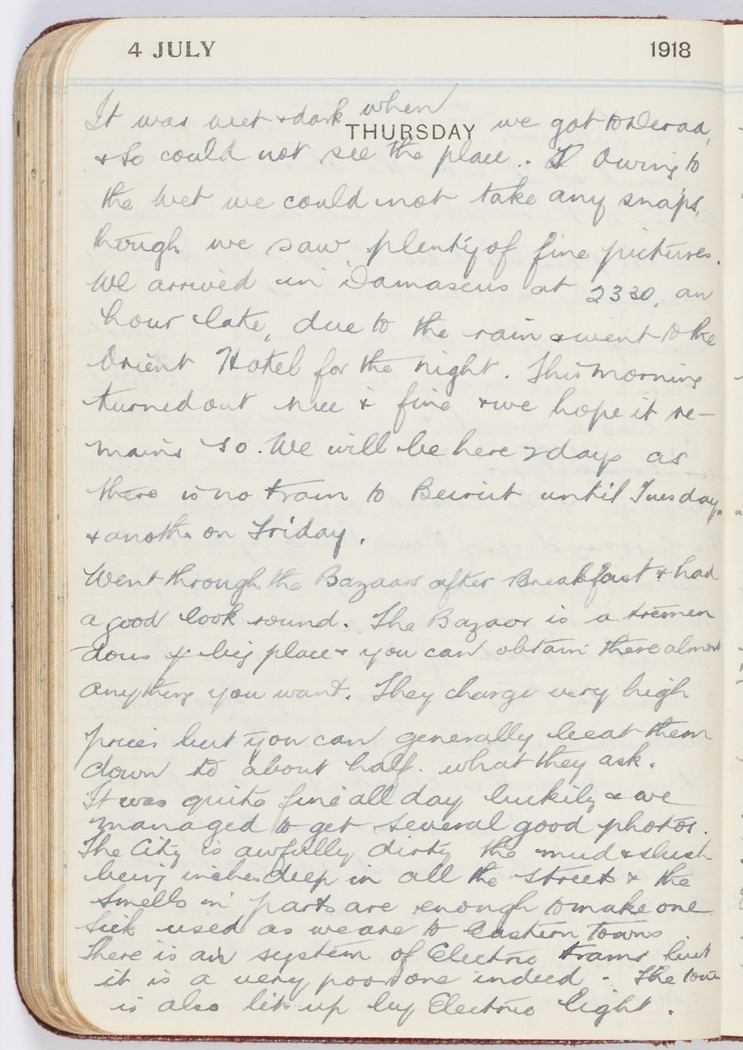 4 JULY 1918
THURSDAY
It was wet & dark when we got to Deraa,
& so could not see the place.. Owing to
the wet we could not take any snaps,
though we saw plenty of fine pictures.
We arrived in Damascus at 2330, an
hour late, due to the rain & went to the
Orient Hotel for the night. This morning
turned out nice & fine & we hope it re-
mains so. We will be here 2 days as
there is no train to Beirut until Tuesday
& another on Friday.
Went through the Bazaars after Breakfast & had
a good look round. The Bazaar is a tremen
dous big place & you can obtain there almost
anything you want. They charge very high
prices but you can generally beat them
down to about half. what they ask.
It was quite fine all day luckily & we
managed to get several good photos.
The City is awfully dirty the mud & slush
being inches deep in all the streets & the
smells in parts are enough to make one
sick used as we are to Eastern Towns
There is an system of Electric trams but
it is a very poor one indeed - The town
is also lit up by Electric light.